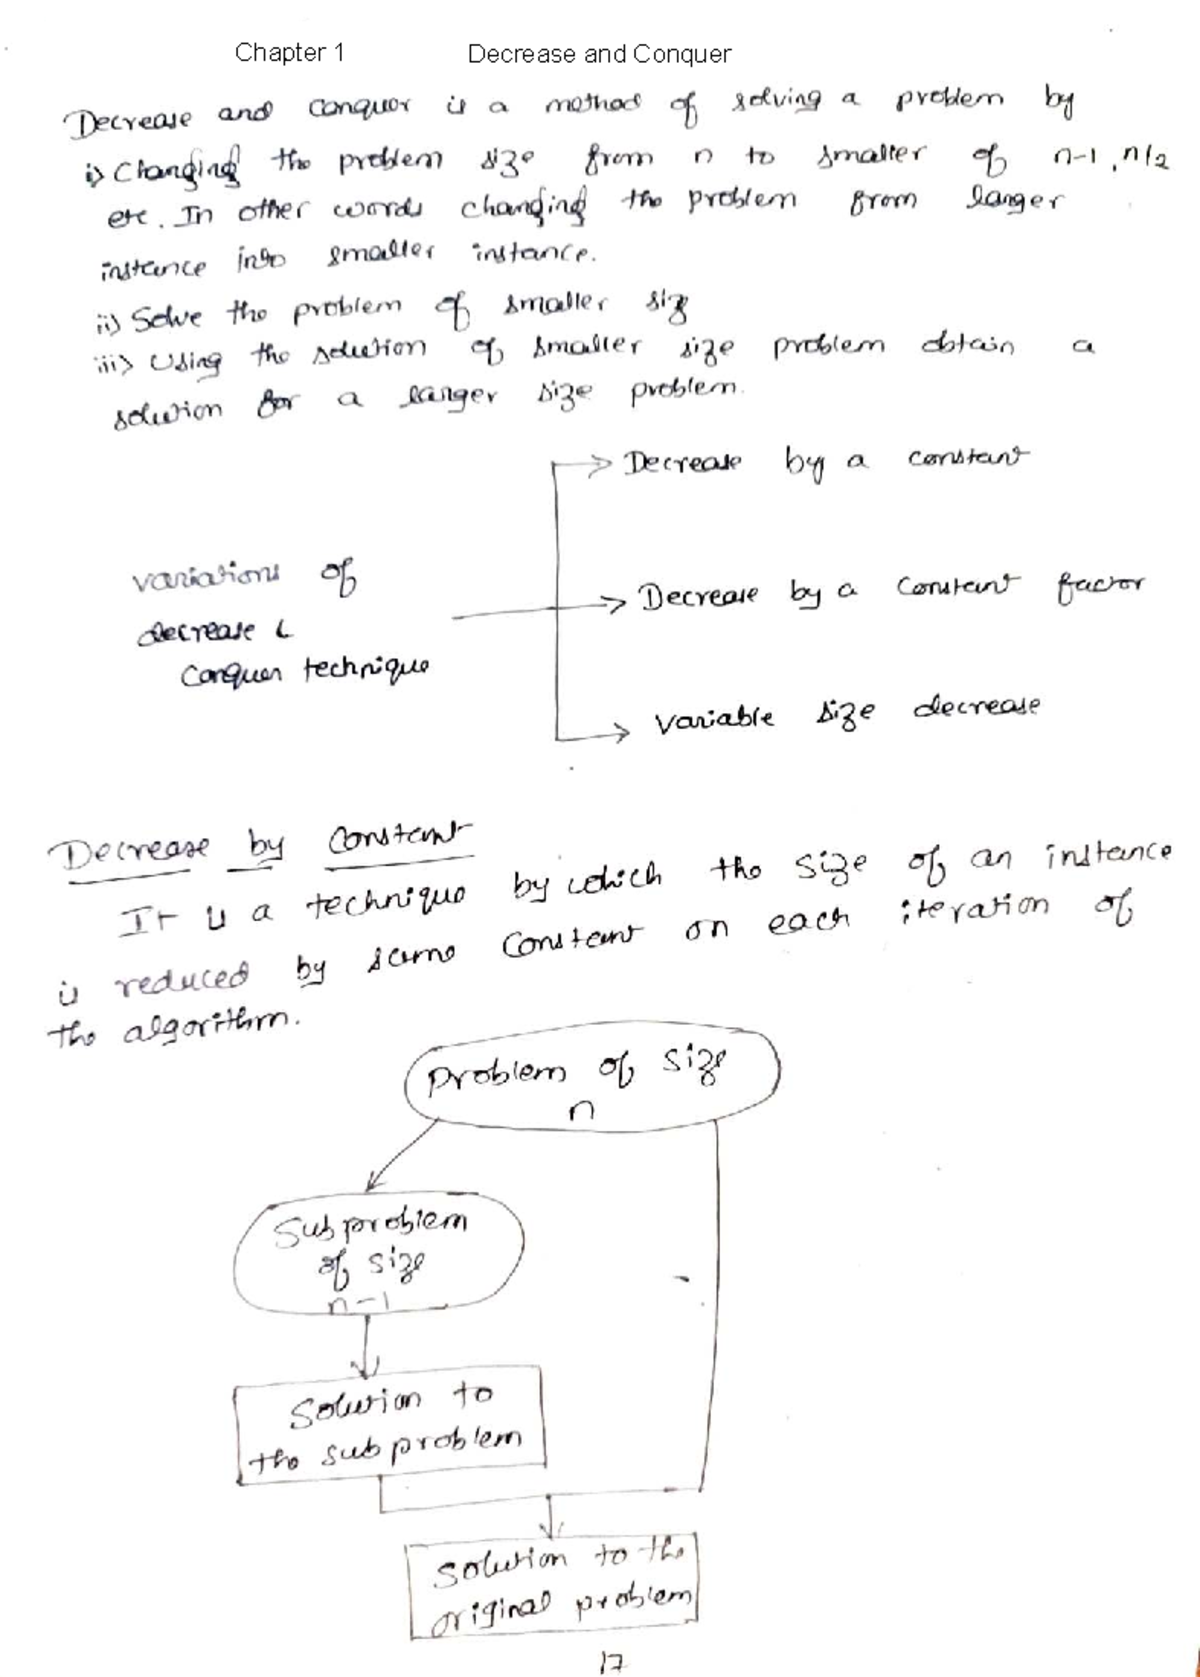 Chapter 1 Decrease and Conquer
Decrease and conquer is a method of solving a problem by
i) Changing the problem size from n to smaller of n-1, n/2
etc. In other words changing the problem from larger
instance into smaller instance.
ii) Solve the problem of smaller size
iii) Using the solution of smaller size problem obtain a
solution for a larger size problem.
Decrease by a constant
variations of
decrease &
conquer technique
Decrease by a constant factor
variable size decrease
Decrease by constant
It is a technique by which the size of an instance
is reduced by same constant on each iteration of
the algorithm.
problem of size
n
Subproblem
of size
n-1
Solution to
the subproblem
Solution to the
original problem
17